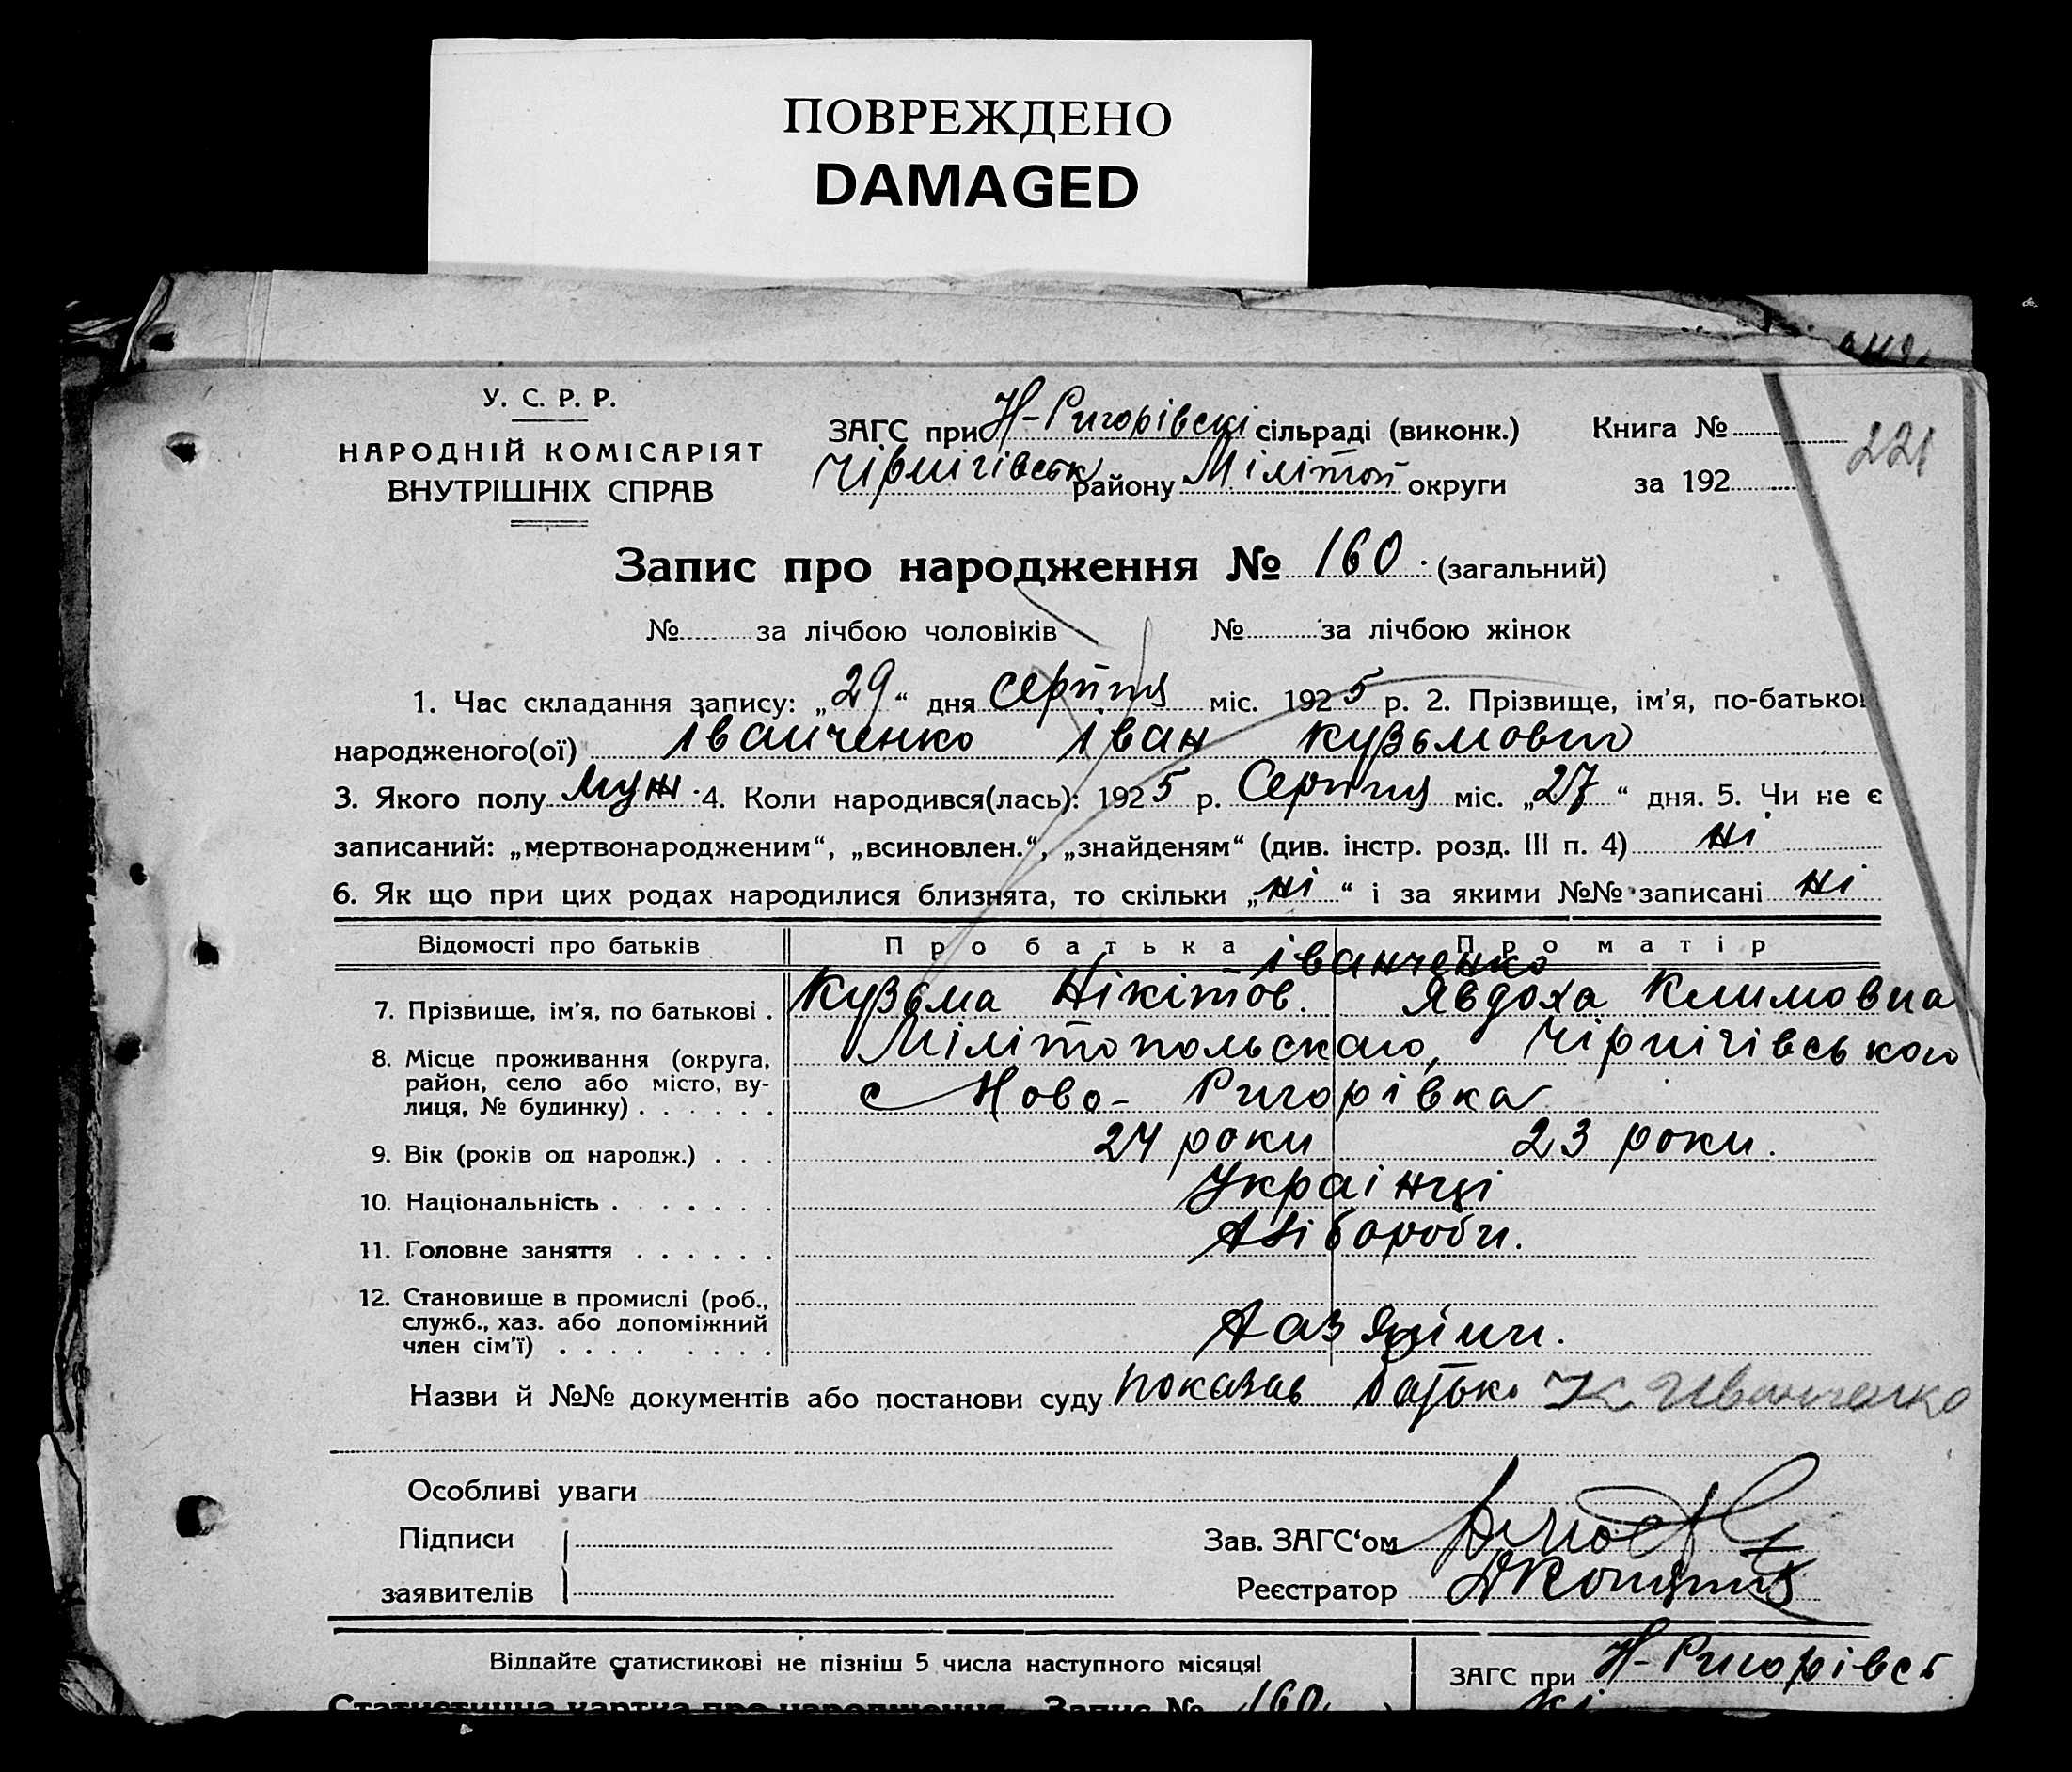 ПОВРЕЖДЕНО
DAMAGED
У. С. Р. Р.
НАРОДНІЙ КОМІСАРІЯТ
ВНУТРІШНІХ СПРАВ
ЗАГС при Н-Ригорівскі сільраді (виконк.)
Чірнігівськ району Мілітоп округи
Книга № 221
за 192
Запис про народження № 160. (загальний)
№ за лічбою чоловіків № за лічбою жінок
1. Час складання запису: „29“ дня серпня міс. 1925 р. 2. Прізвище, ім'я, по-батькові
народженого(ої) Іванченко Іван Кузьмович
3. Якого полу муж. 4. Коли народився(лась): 1925 р. Серпня міс. „27“ дня. 5. Чи не є
записаний: „мертвонародженим“, „всиновлен.“, „знайденям“ (див. інстр. розд. III п. 4) ні
6. Як що при цих родах народилися близнята, то скільки „ні“ і за якими №№ записані ні
Відомості про батьків Про батька Про матір
Іванченко
7. Прізвище, ім'я, по батькові . Кузьма Нікітов. Явдоха Климовна
8. Місце проживання (округа, Мілітопольского, Чірнігівського
район, село або місто, ву-
лиця, № будинку) . . . . . . с Ново-Ригорівка
9. Вік (років од народж.) . . . 24 роки 23 роки.
10. Національність . . . . . . . Українці
11. Головне заняття . . . . . . Хлібороби.
12. Становище в промислі (роб.,
служб., хаз. або допоміжний
член сім'ї) . . . . . . . . Хазяїни.
Назви й №№ документів або постанови суду показав батько К Иванченко
Особливі уваги
Підписи Зав. ЗАГС‘ом
заявителів Реєстратор
Віддайте статистикові не пізніш 5 числа наступного місяця!
ЗАГС при Н-Ригорівсь
Статистична картка про народження. Запис № 160 кі